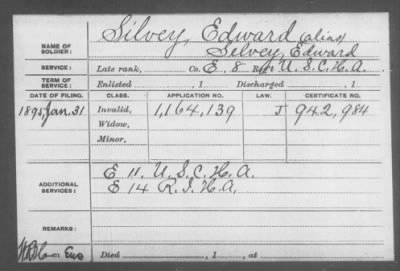 NAME OF SOLDIER: Silvey, Edward (alias)
Selvey, Edward
SERVICE: Late rank, Co. E. 8 Reg't U. S. C. H. A.
TERM OF SERVICE: Enlisted , 1 Discharged , 1
DATE OF FILING. CLASS. APPLICATION NO. LAW. CERTIFICATE NO.
1895, Jan. 31 Invalid, 1,164,139 J 942,984
Widow,
Minor,
ADDITIONAL SERVICES: E 11. U. S. C. H. A.
E 14 R. I. H. A.
REMARKS:
Died , 1 , at